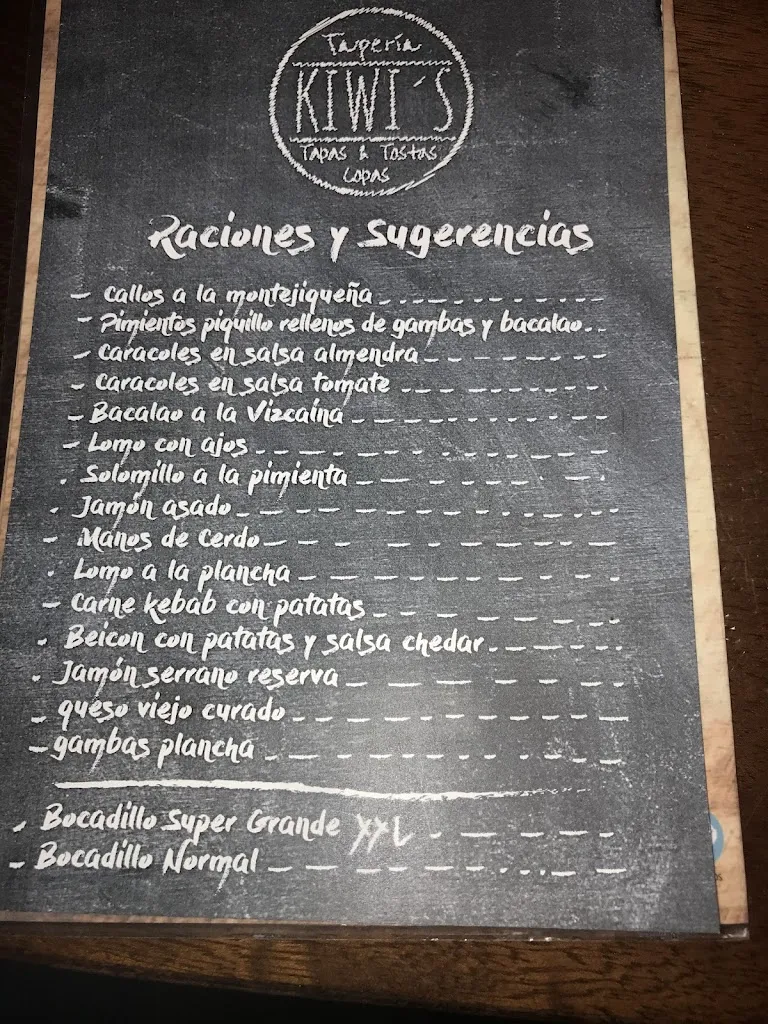 Tapería
KIWI´S
Tapas & Tostas
Copas
Raciones y Sugerencias
- Callos a la montejiqueña
- Pimientos piquillo rellenos de gambas y bacalao
- Caracoles en salsa almendra
- Caracoles en salsa tomate
- Bacalao a la Vizcaína
- Lomo con ajos
- Solomillo a la pimienta
- Jamón asado
- Manos de Cerdo
- Lomo a la plancha
- Carne kebab con patatas
- Beicon con patatas y salsa chedar
- Jamón serrano reserva
- queso viejo curado
- gambas plancha
- Bocadillo Super Grande XXL
- Bocadillo Normal